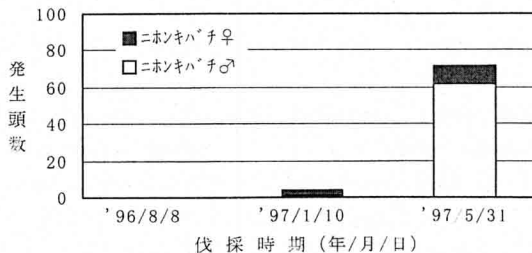 100
80
60
40
20
0
発生頭数
■ﾆﾎﾝｷﾊﾞﾁ♀
□ﾆﾎﾝｷﾊﾞﾁ♂
'96/8/8 '97/1/10 '97/5/31
伐採時期(年/月/日)